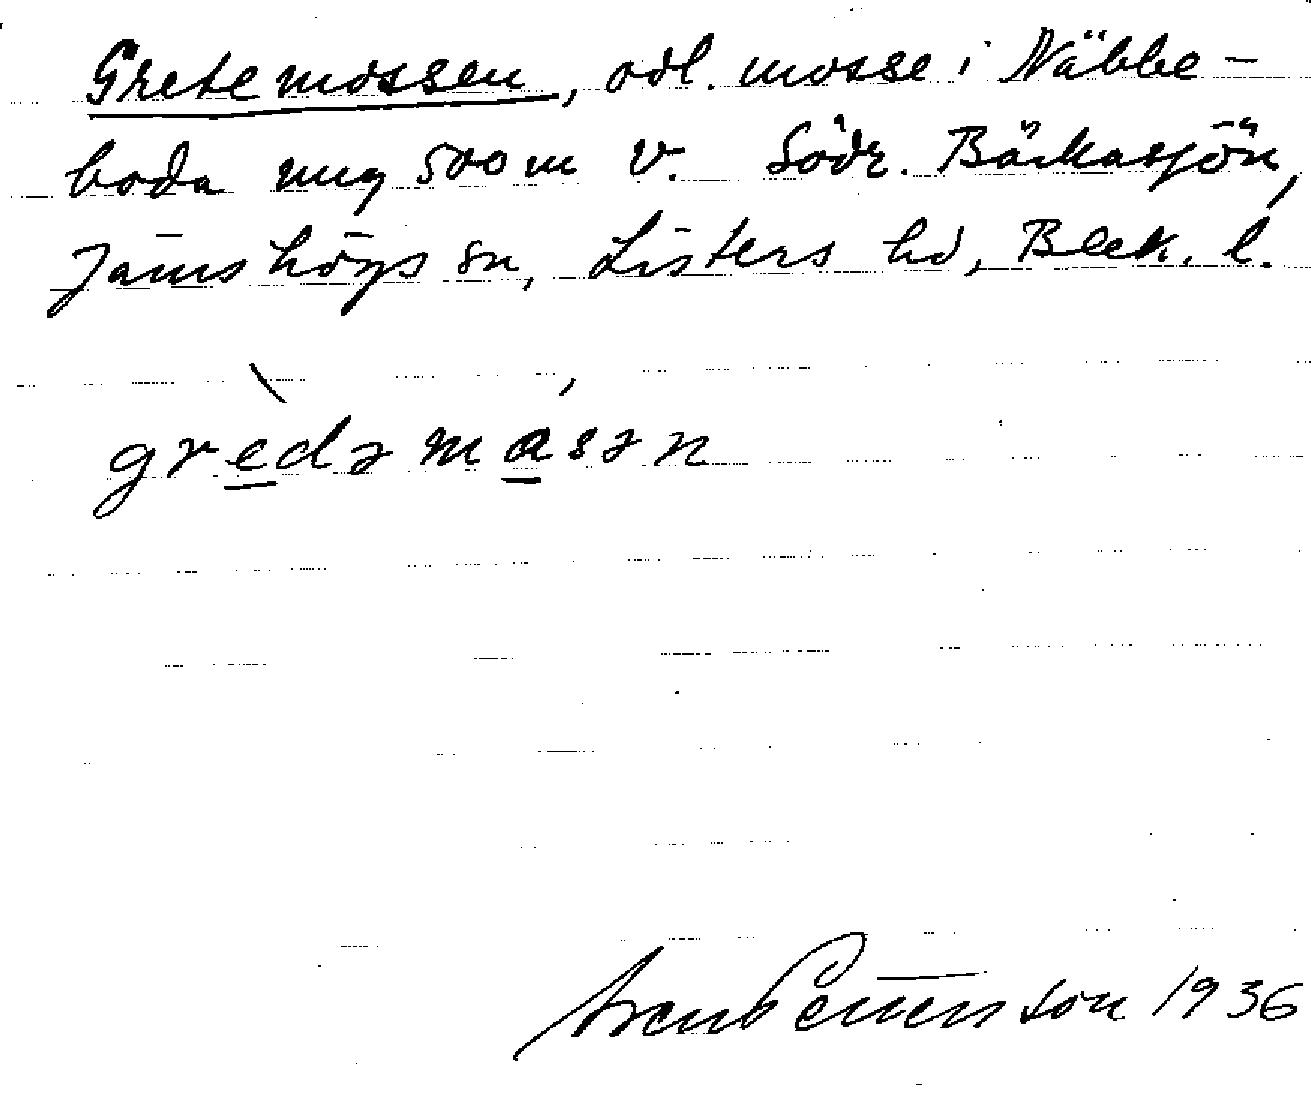 Gretemossen, odl. mosse i Näbbe-
boda ung 500 m v. Södr. Bäckasjön,
Jämshögs sn, Listers hd, Blek. l.
grèdəmásən
Pettersson 1936